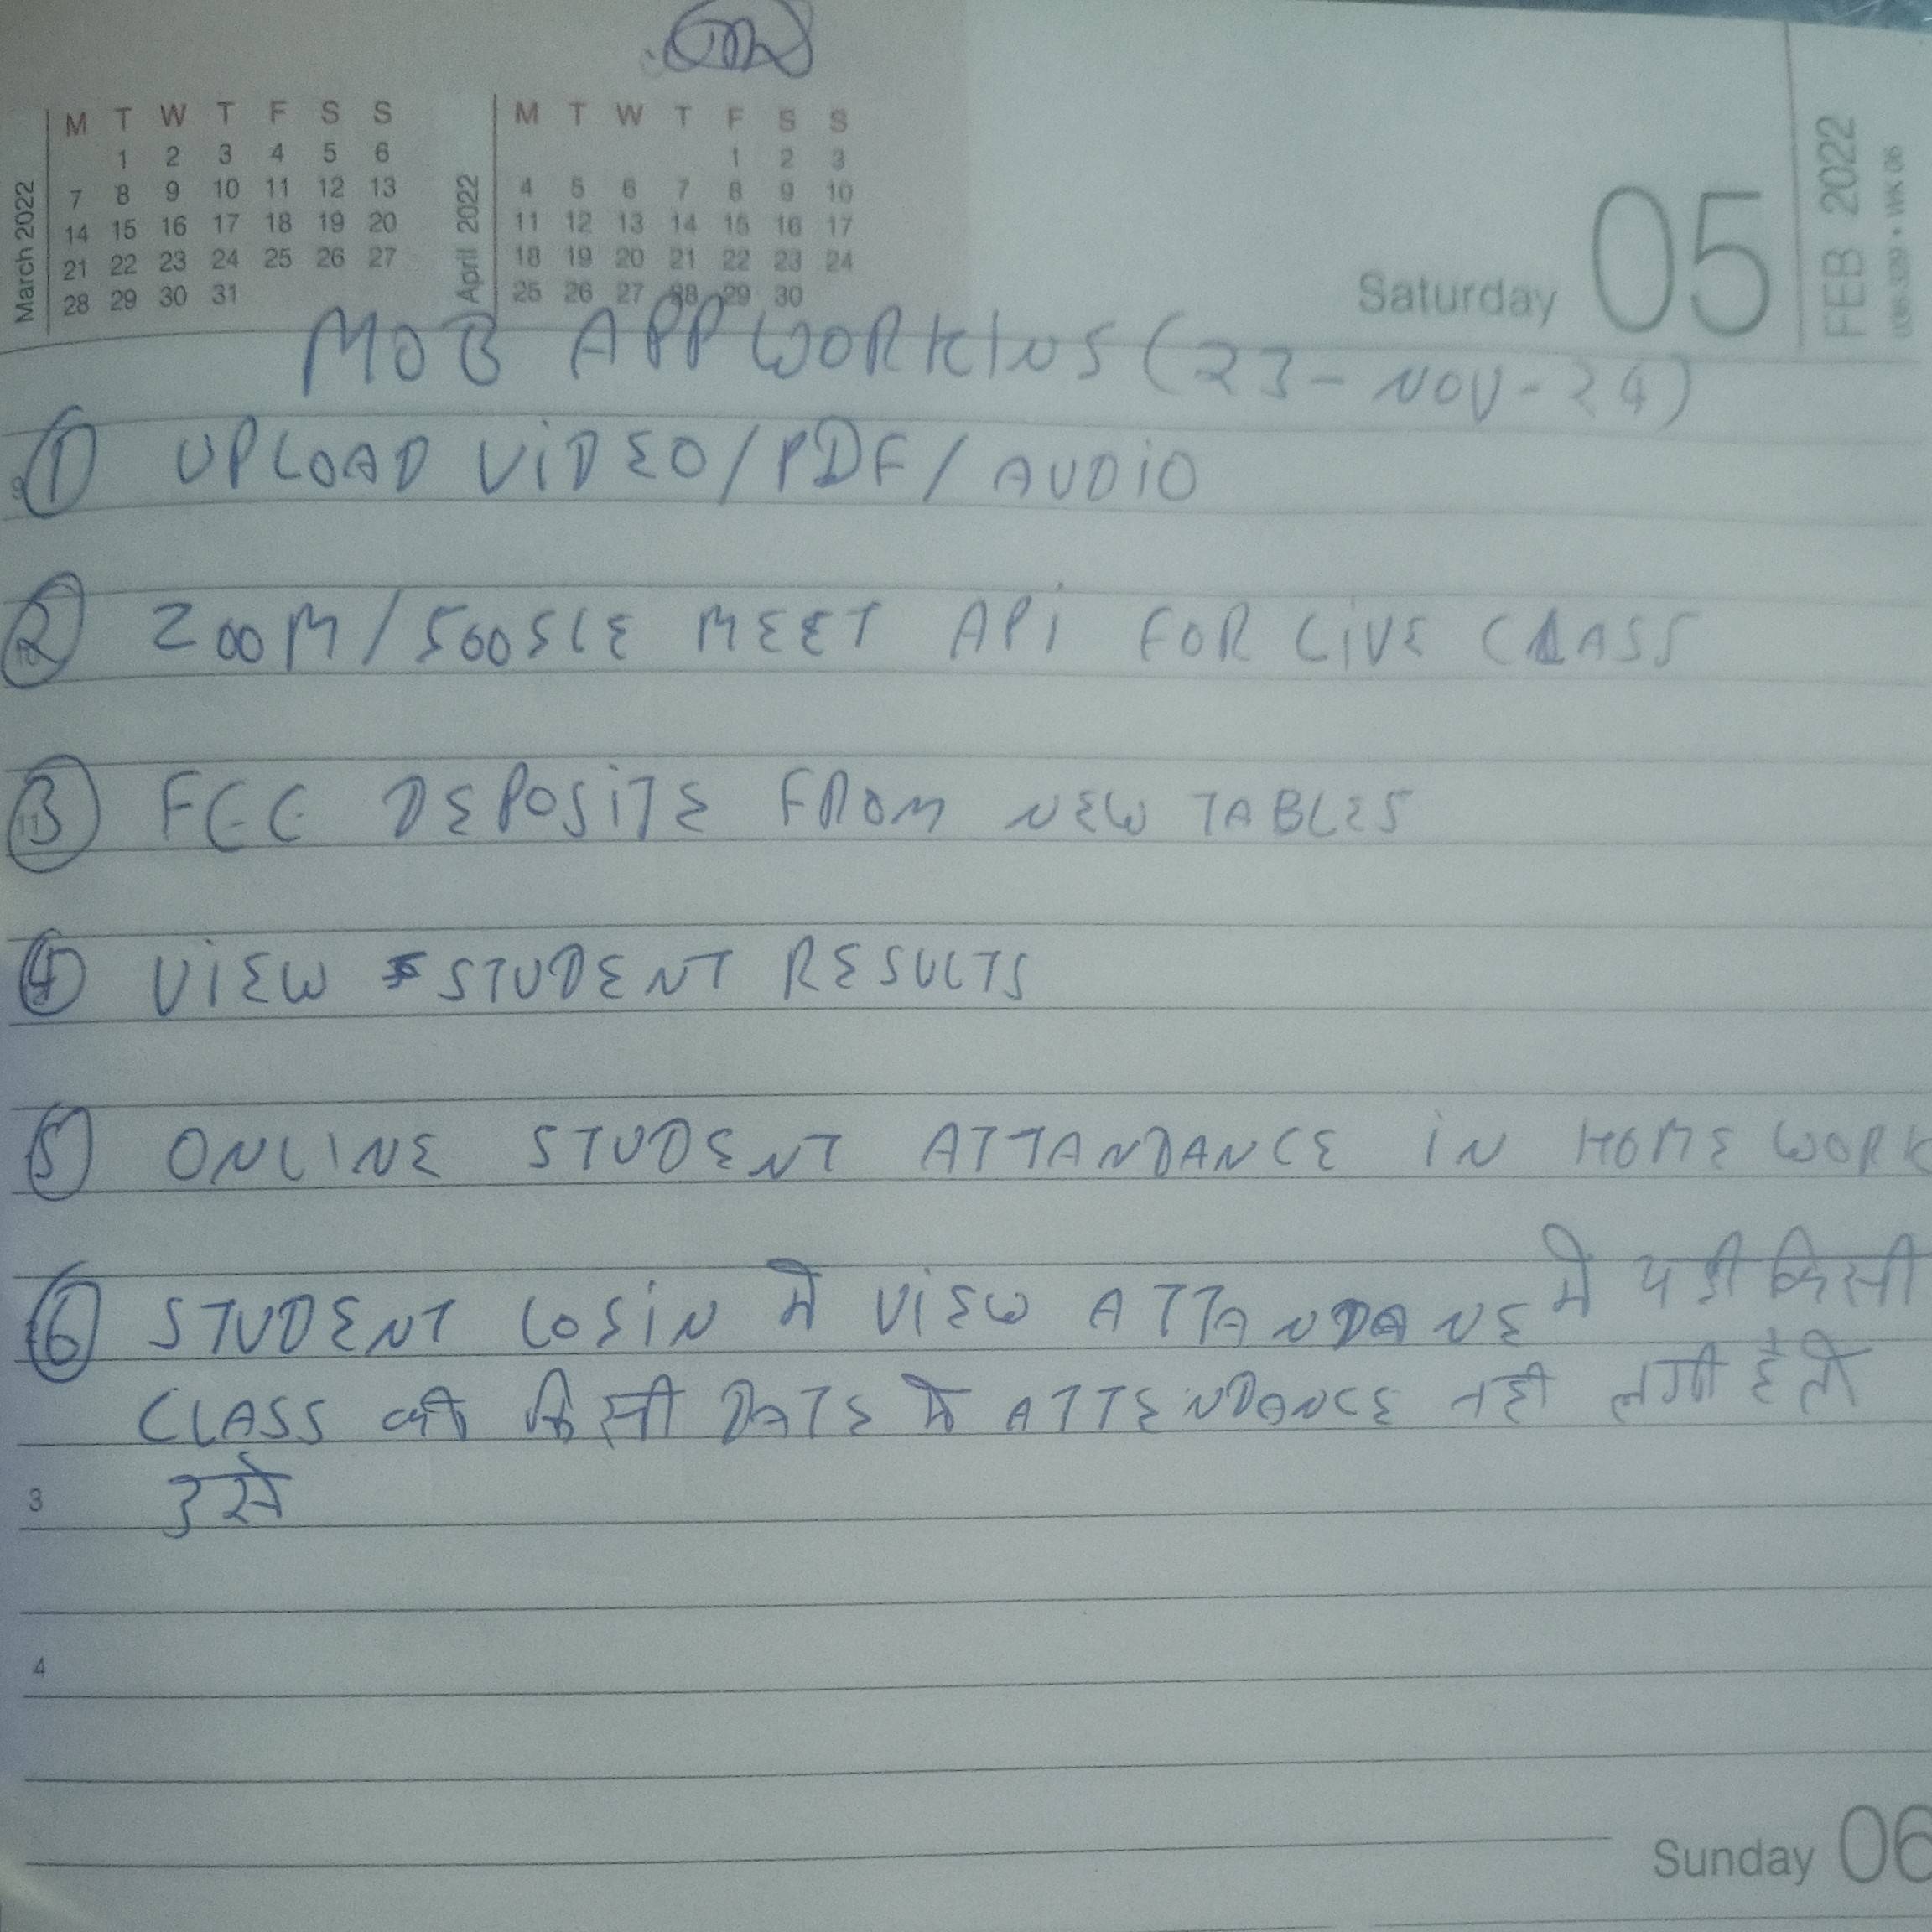 ॐ
March 2022
M T W T F S S
1 2 3 4 5 6
7 8 9 10 11 12 13
14 15 16 17 18 19 20
21 22 23 24 25 26 27
28 29 30 31
April 2022
M T W T F S S
1 2 3
4 5 6 7 8 9 10
11 12 13 14 15 16 17
18 19 20 21 22 23 24
25 26 27 28 29 30
Saturday 05
FEB 2022
WK 06
MOB APP WORKING (23-NOV-24)
① UPLOAD VIDEO/PDF/AUDIO
② ZOOM/GOOGLE MEET API FOR LIVE CLASS
③ FEE DEPOSITE FROM NEW TABLES
④ VIEW STUDENT RESULTS
⑤ ONLINE STUDENT ATTANDANCE IN HOME WORK
⑥ STUDENT LOGIN में VIEW ATTANDANE में यदी किसी
CLASS की किसी DATE में ATTENDANCE नही लगी है तो
3 उसे
4
Sunday 06